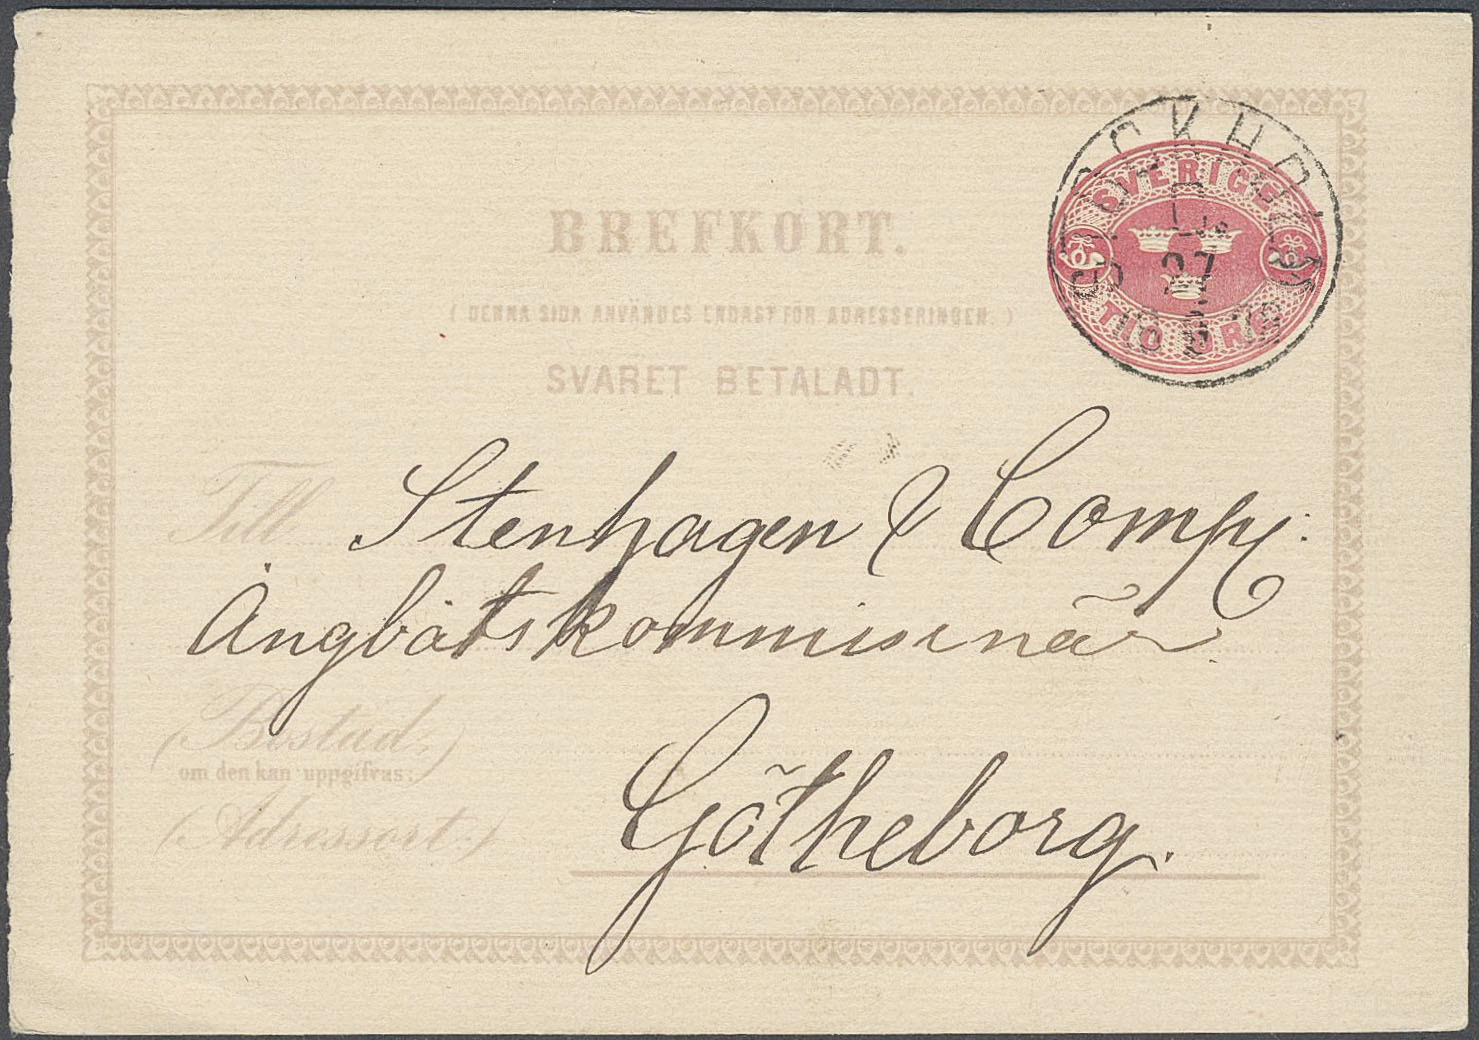 STOCKHOLM
SVERIGE
27
TIO ÖRE
BREFKORT.
( DENNA SIDA ANVÄNDES ENDAST FÖR ADRESSERINGEN. )
SVARET BETALADT.
Till Stenhagen & Comp:
Ångbåtskommisinär
(Bostad,
om den kan uppgifvas:)
Götheborg.
(Adressort:)